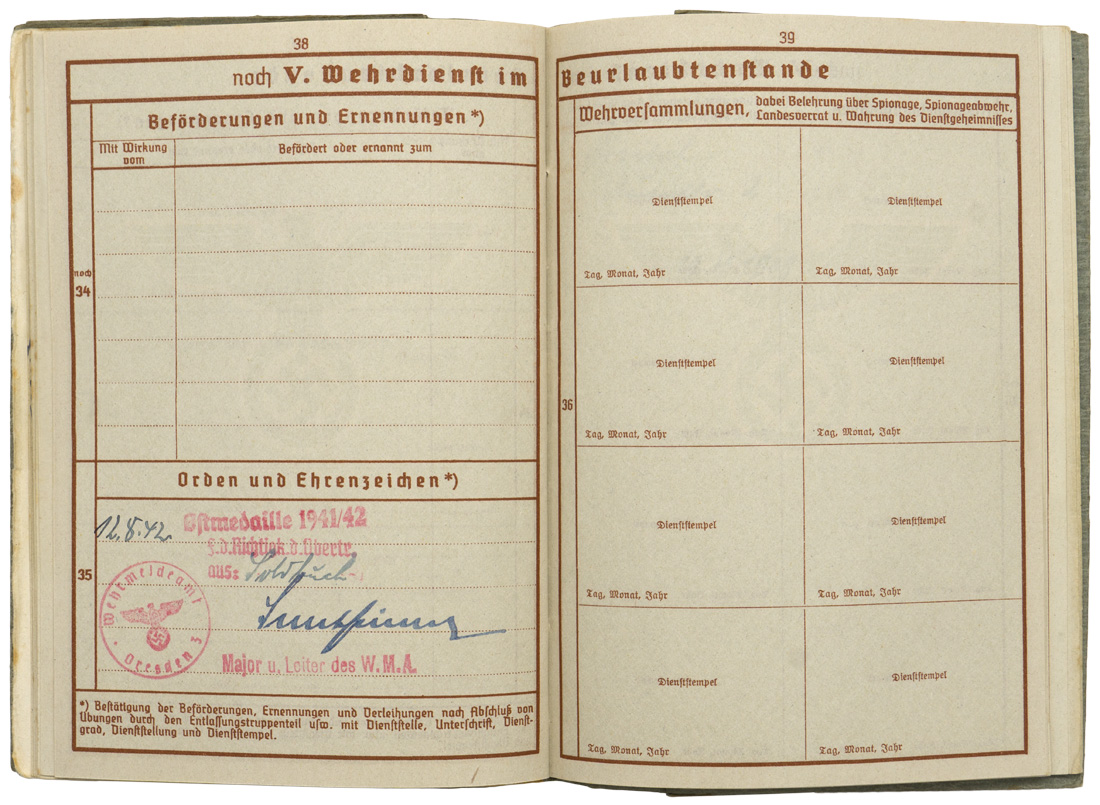 38
noch V. Wehrdienst im
Beförderungen und Ernennungen *)
Mit Wirkung vom
Befördert oder ernannt zum
noch
34
Orden und Ehrenzeichen *)
12.8.42.
Ostmedaille 1941/42
f.d. Richtigk.d. Übertr.
aus: Soldbuch
35
Wehrmeldeamt
Dresden 3
Major u. Leiter des W.M.A.
*) Bestätigung der Beförderungen, Ernennungen und Verleihungen nach Abschluß von
Übungen durch den Entlassungstruppenteil usw. mit Dienststelle, Unterschrift, Dienst-
grad, Dienststellung und Dienststempel.
39
Beurlaubtenstande
Wehrversammlungen, dabei Belehrung über Spionage, Spionageabwehr,
Landesverrat u. Wahrung des Dienstgeheimnisses
36
Dienststempel
Dienststempel
Tag, Monat, Jahr
Tag, Monat, Jahr
Dienststempel
Dienststempel
Tag, Monat, Jahr
Tag, Monat, Jahr
Dienststempel
Dienststempel
Tag, Monat, Jahr
Tag, Monat, Jahr
Dienststempel
Dienststempel
Tag, Monat, Jahr
Tag, Monat, Jahr